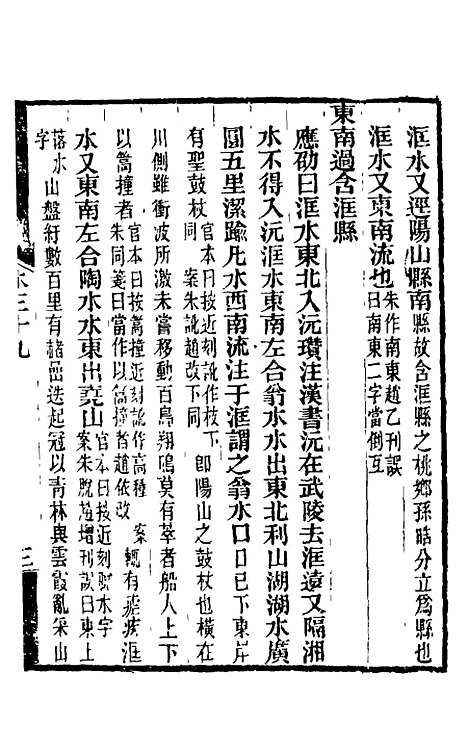 洭水又逕陽山縣南縣故含洭縣之桃鄉孫皓分立爲縣也
洭水又東南流也朱作南東趙乙刊誤曰南東二字當倒互
東南過含洭縣
應劭曰洭水東北入沅瓚注漢書沅在武陵去洭遠又隔湘
水不得入沅洭水東南左合翁水水出東北利山湖湖水廣
圓五里潔踰凡水西南流注于洭謂之翁水口口已下東岸
有聖鼓杖官本曰按近刻訛作枝下同案朱訛趙改下同卽陽山之鼓杖也橫在
川側雖衝波所激未嘗移動百鳥翔鳴莫有萃者船人上下
以篙撞者官本曰按篙撞近刻訛作高橦案朱同箋曰當作以篙撞者趙依改輒有瘧疾洭
水又東南左合陶水水東出堯山官本曰按近刻脫水字案朱脫趙增刊誤曰東上
落水字山盤紆數百里有赭嵒迭起冠以青林與雲霞亂采山
水三十九
三